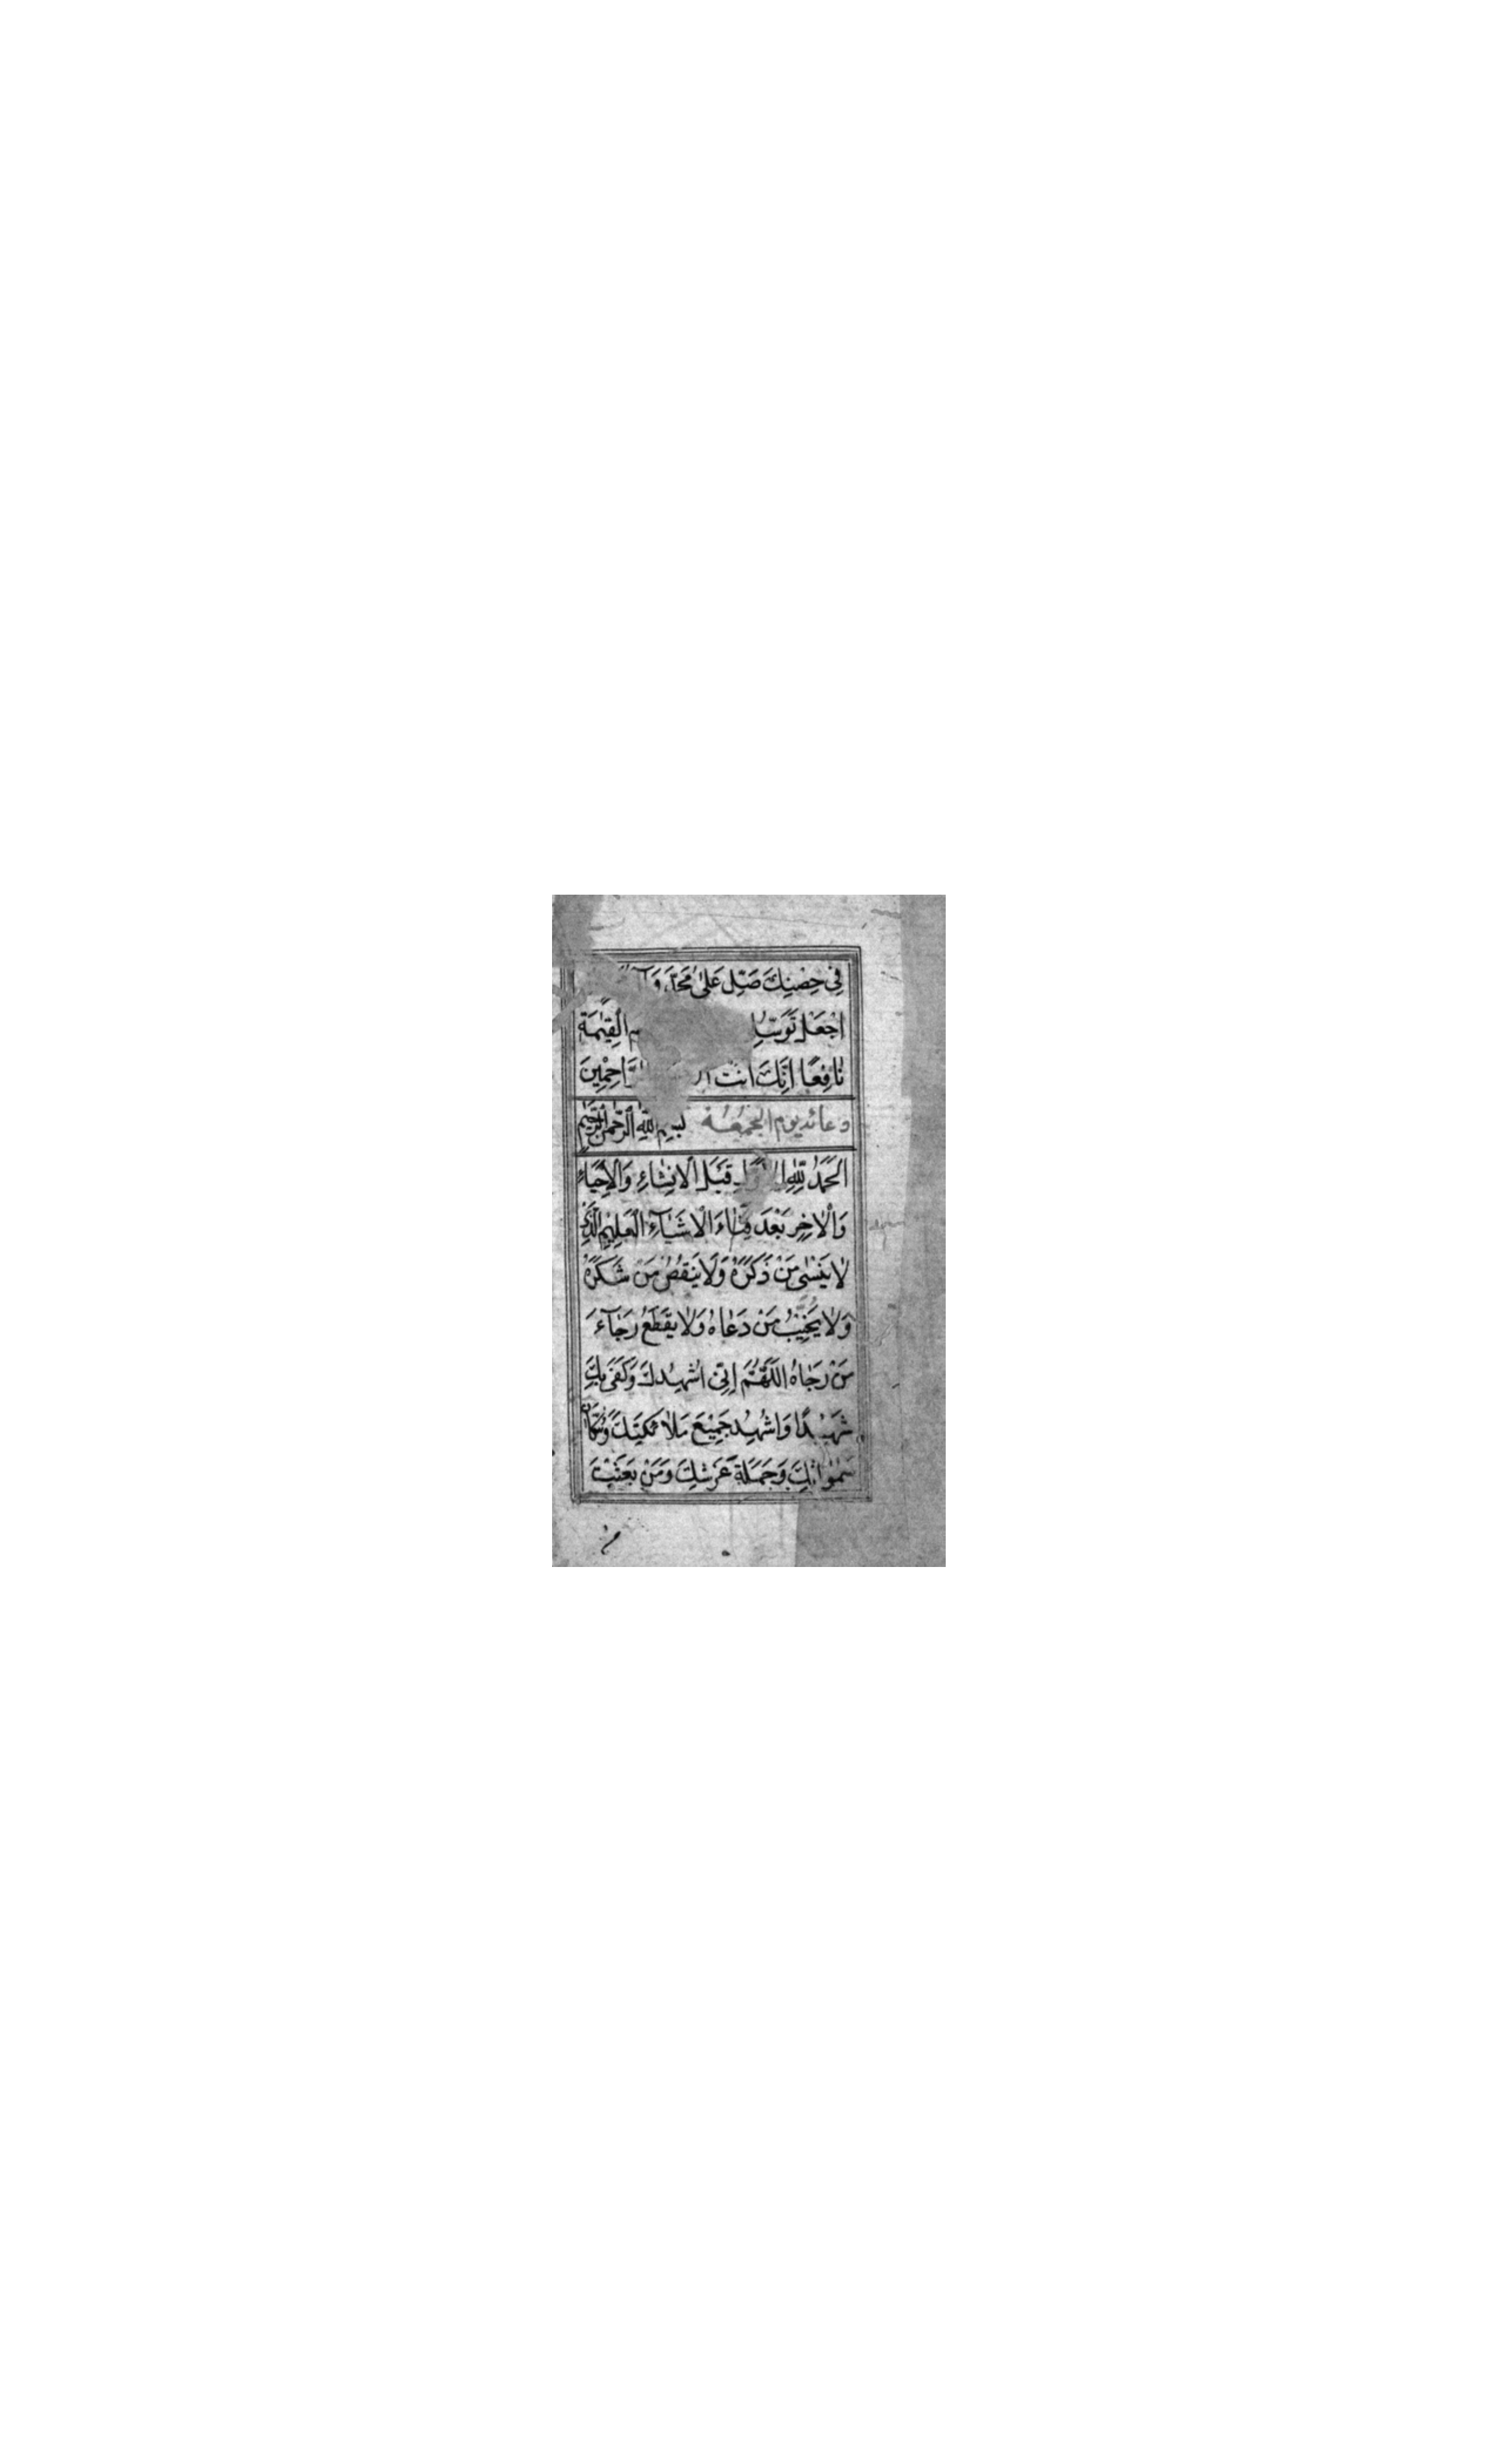 فِي حِصْنِكَ صَلِّ عَلىٰ مُحَمَّدٍ وَآ
اجْعَلْ تَوَسُّلِ م الْقِيٰمَةِ
نٰافِعًا اِنَّكَ اَنْتَ الرَّاحِمِينَ
دعائ يوم الجُمُعَة بِسْمِ اللّٰهِ الرَّحْمٰنِ الرَّحِيمِ
الْحَمْدُ لِلّٰهِ الْاَوَّلِ قَبْلَ الْاِنْشٰاءِ وَالْاِحْيٰاءِ
وَالْاٰخِرِ بَعْدَ فَنٰاءِ الْاَشْيٰآءِ الْعَلِيمِ الَّذِي
لٰا يَنْسٰى مَنْ ذَكَرَهُ وَلٰا يَنْقُصُ مَنْ شَكَرَهُ
وَلٰا يُخَيِّبُ مَنْ دَعٰاهُ وَلٰا يَقْطَعُ رَجٰآءَ
مَنْ رَجٰاهُ اللّٰهُمَّ اِنِّي اُشْهِدُكَ وَكَفَىٰ بِكَ
شَهِيدًا وَاُشْهِدُ جَمِيعَ مَلٰائِكَتِكَ وَسُكّٰانَ
سَمٰوٰاتِكَ وَحَمَلَةَ عَرْشِكَ وَمَنْ بَعَثْتَ
من